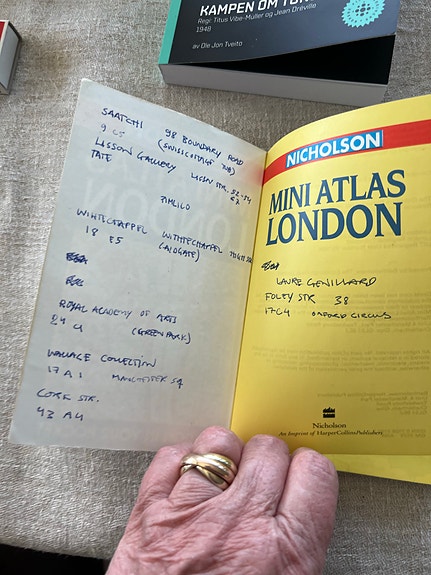 KAMPEN OM
Regi: Titus Vibe-Müller og Jean Dréville
1948
av Ole Jon Tveito
SAATCHI 98 BOUNDARY ROAD
9
LISSON GALLERY LISSN STR. 52-54
TATE
PIMLICO
WHITECHAPPEL WITHTECHAPPEL
18 E5 (ALDGATE)
ROYAL ACADEMY OF ARTS
24 4 (GREEN PARK)
WALLACE COLLECTION
17 A1 MANCHESTER SQ
CORK STR.
43 A4
NICHOLSON
MINI ATLAS
LONDON
LAURE GENILLARD
FOLEY STR 38
17C4 OXFORD CIRCUS
Nicholson
An Imprint of HarperCollinsPublishers